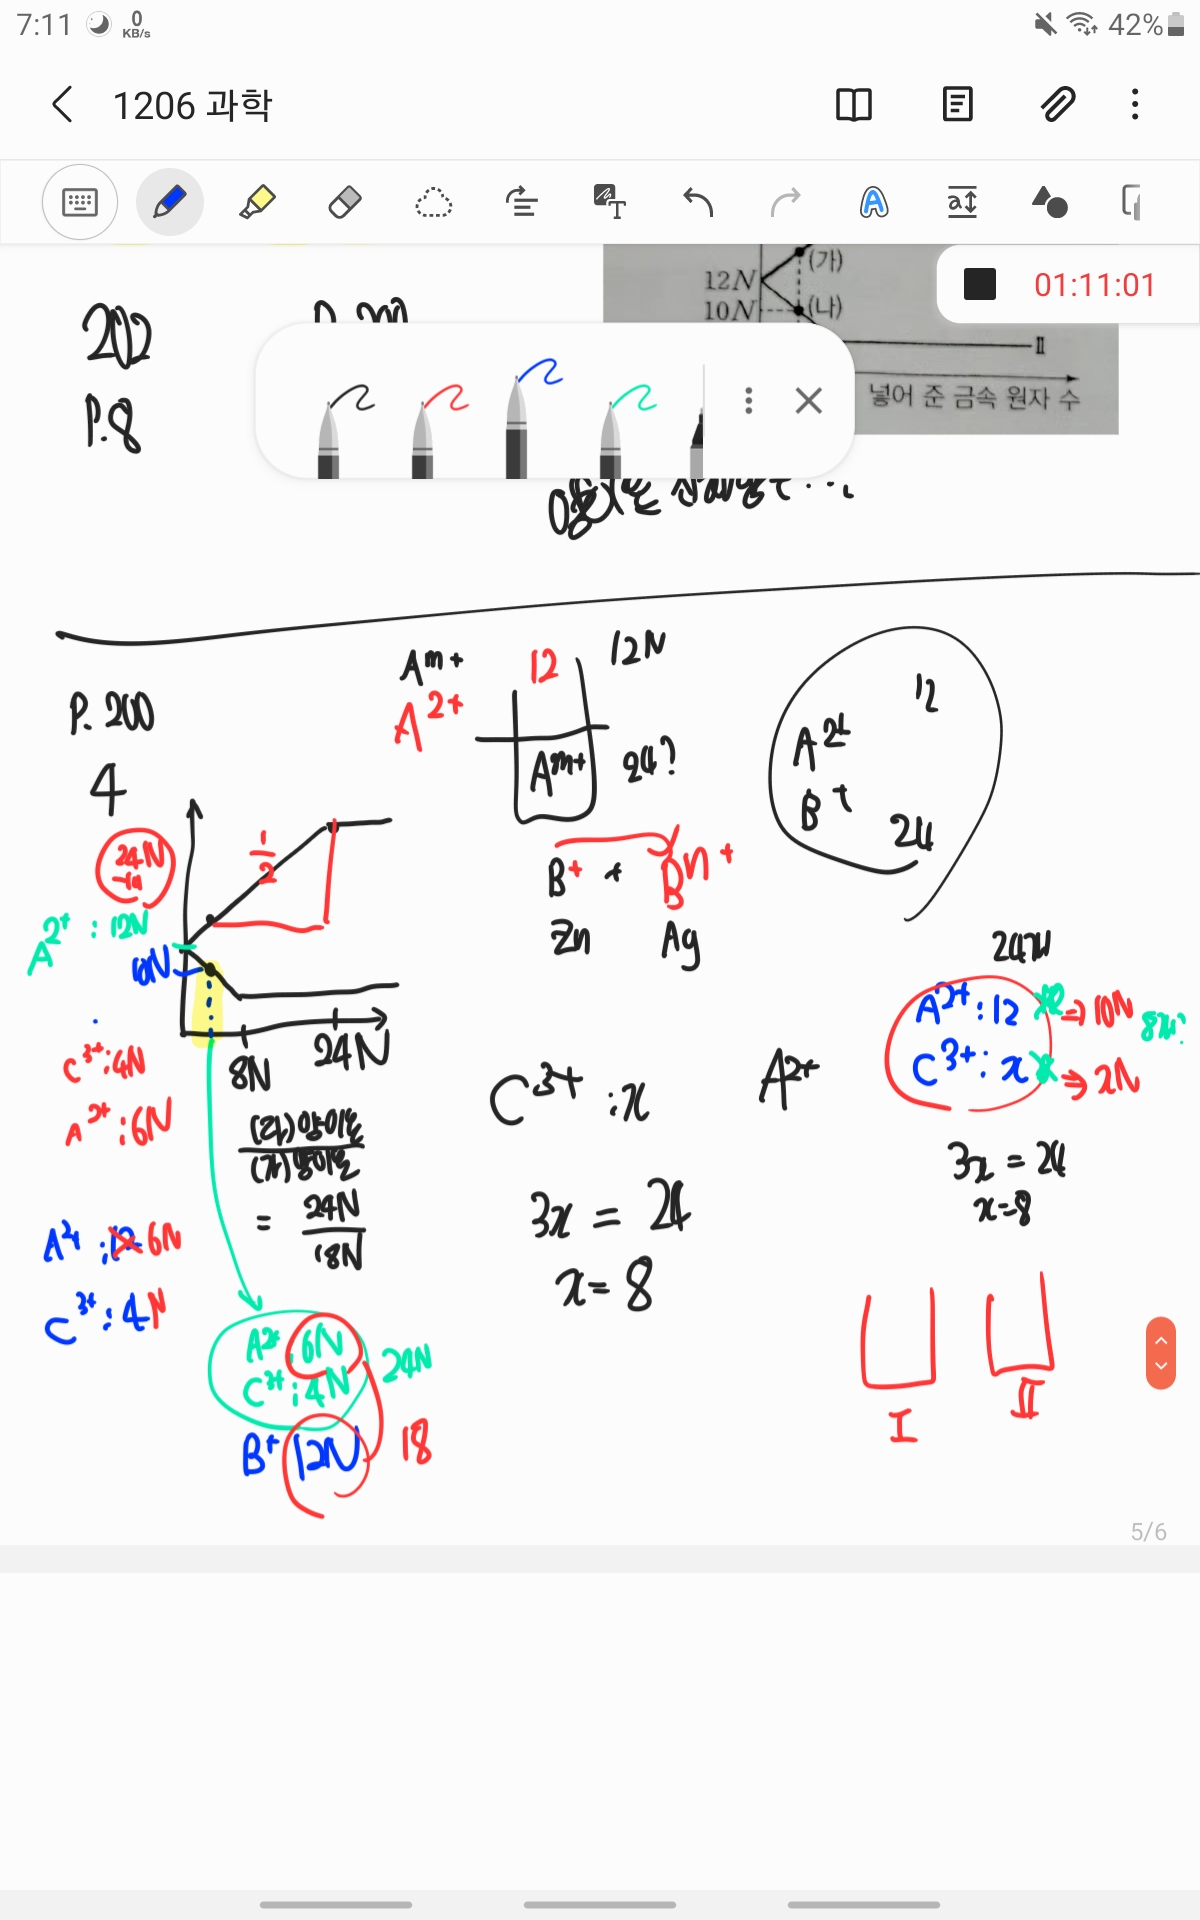 7:11
0
KB/s
42%
1206 과학
01:11:01
(가)
12N
10N
(나)
II
넣어 준 금속 원자 수
202
P.8
P. 200
4
A^m+
A^2+
12
12N
A^m+
24?
B+ + B^n+
Zn
Ag
12
A^2+
B+
24
24N
1/2
A^2+ : 12N
10N
C^3+ : 4N
A^2+ : 6N
8N
24N
(라) 양이온
(가) 양이온
= 24N/18N
A^2+ : 12 6N
C^3+ : 4N
A^2+ : 6N
C^3+ : 4N
24N
B+ 12N
18
C^3+ : x
3x = 24
x = 8
A^2+
24개
A^2+ : 12 ⇒ 10N
8개?
C^3+ : x ⇒ 2N
3x = 24
x = 8
I
II
5/6